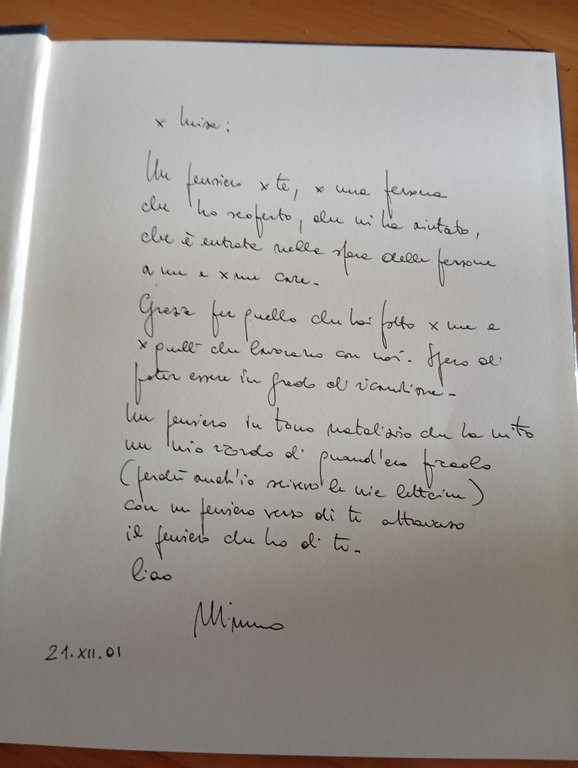 x Luisa:
Un pensiero x te, x una persona
che ho scoperto, che mi ha aiutato,
che è entrata nella sfera delle persone
a me e x me care.
Grazie per quello che hai fatto x me e
x quelli che lavorano con noi. Spero di
poter essere in grado di ricambiare.
Un pensiero in tono natalizio che ha unito
un mio ricordo di quand'ero piccolo
(perché anch'io scrivevo le mie letterine)
con un pensiero verso di te attraverso
il pensiero che ho di te.
Ciao
21.XII.01